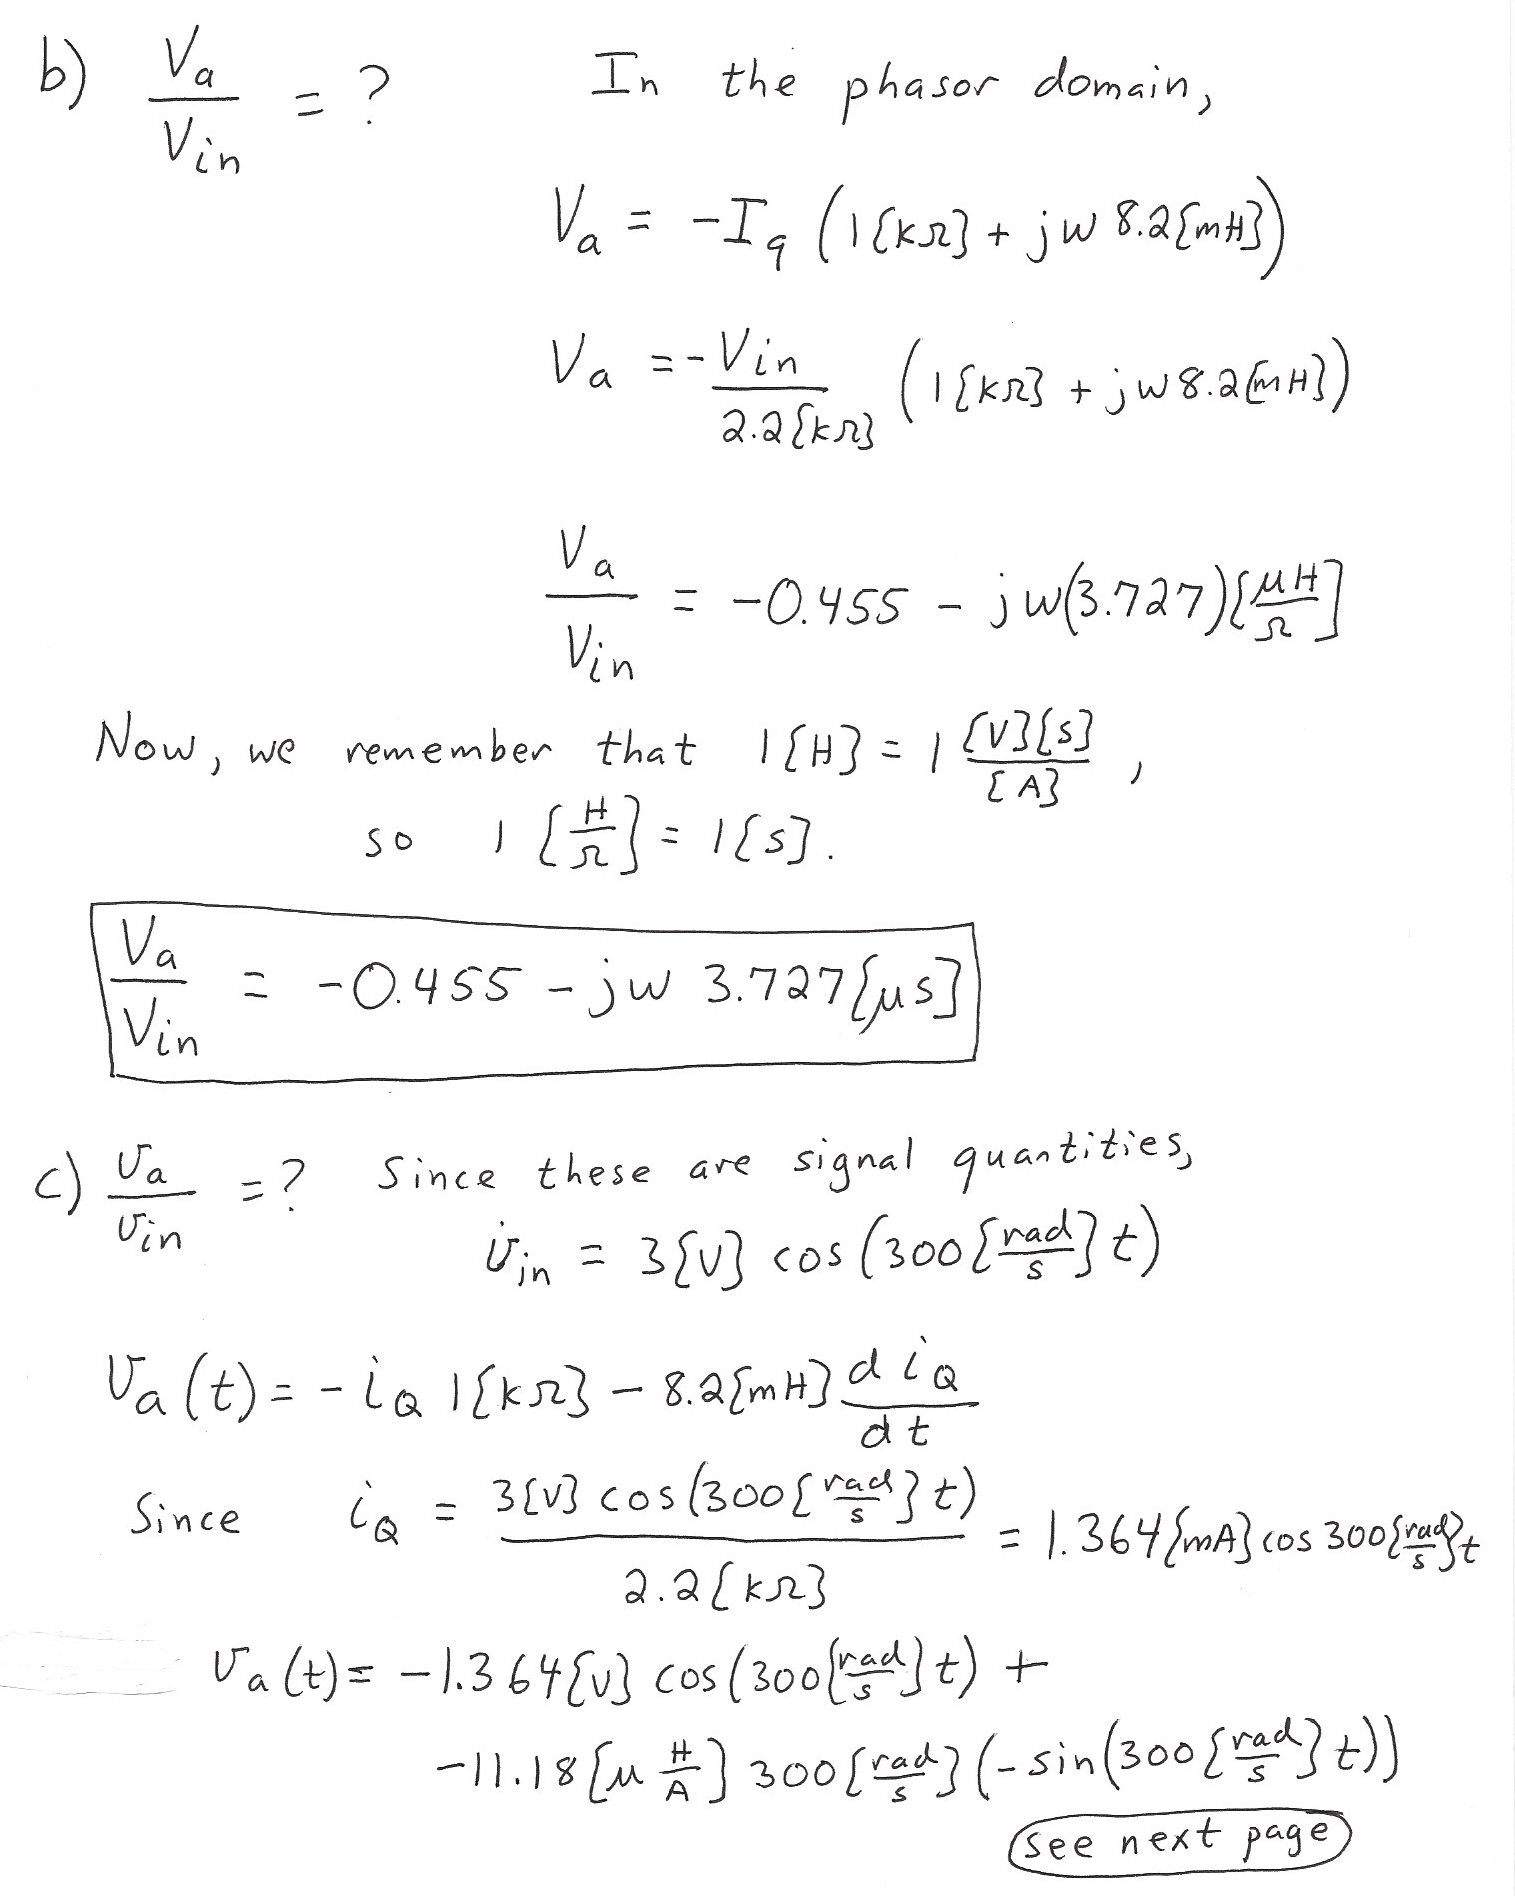 b) Va/Vin = ? In the phasor domain,
Va = -Iq (1[kΩ] + jw 8.2[mH])
Va = -Vin/2.2[kΩ] (1[kΩ] + jw 8.2[mH])
Va/Vin = -0.455 - jw(3.727)[μH/Ω]
Now, we remember that 1[H] = 1 [V][s]/[A],
so 1 [H/Ω] = 1[s].
Va/Vin = -0.455 - jw 3.727[μs]
c) va/vin = ? Since these are signal quantities,
vin = 3[V] cos(300[rad/s]t)
va(t) = -iQ 1[kΩ] - 8.2[mH] diQ/dt
Since iQ = 3[V] cos(300[rad/s]t)/2.2[kΩ] = 1.364[mA] cos 300[rad/s]t
va(t) = -1.364[V] cos(300[rad/s]t) +
-11.18[μ H/A] 300[rad/s](-sin(300[rad/s]t))
see next page